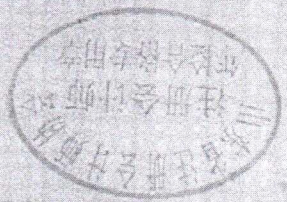 山东省注册会计师协会
注册会计师
年检合格专用章